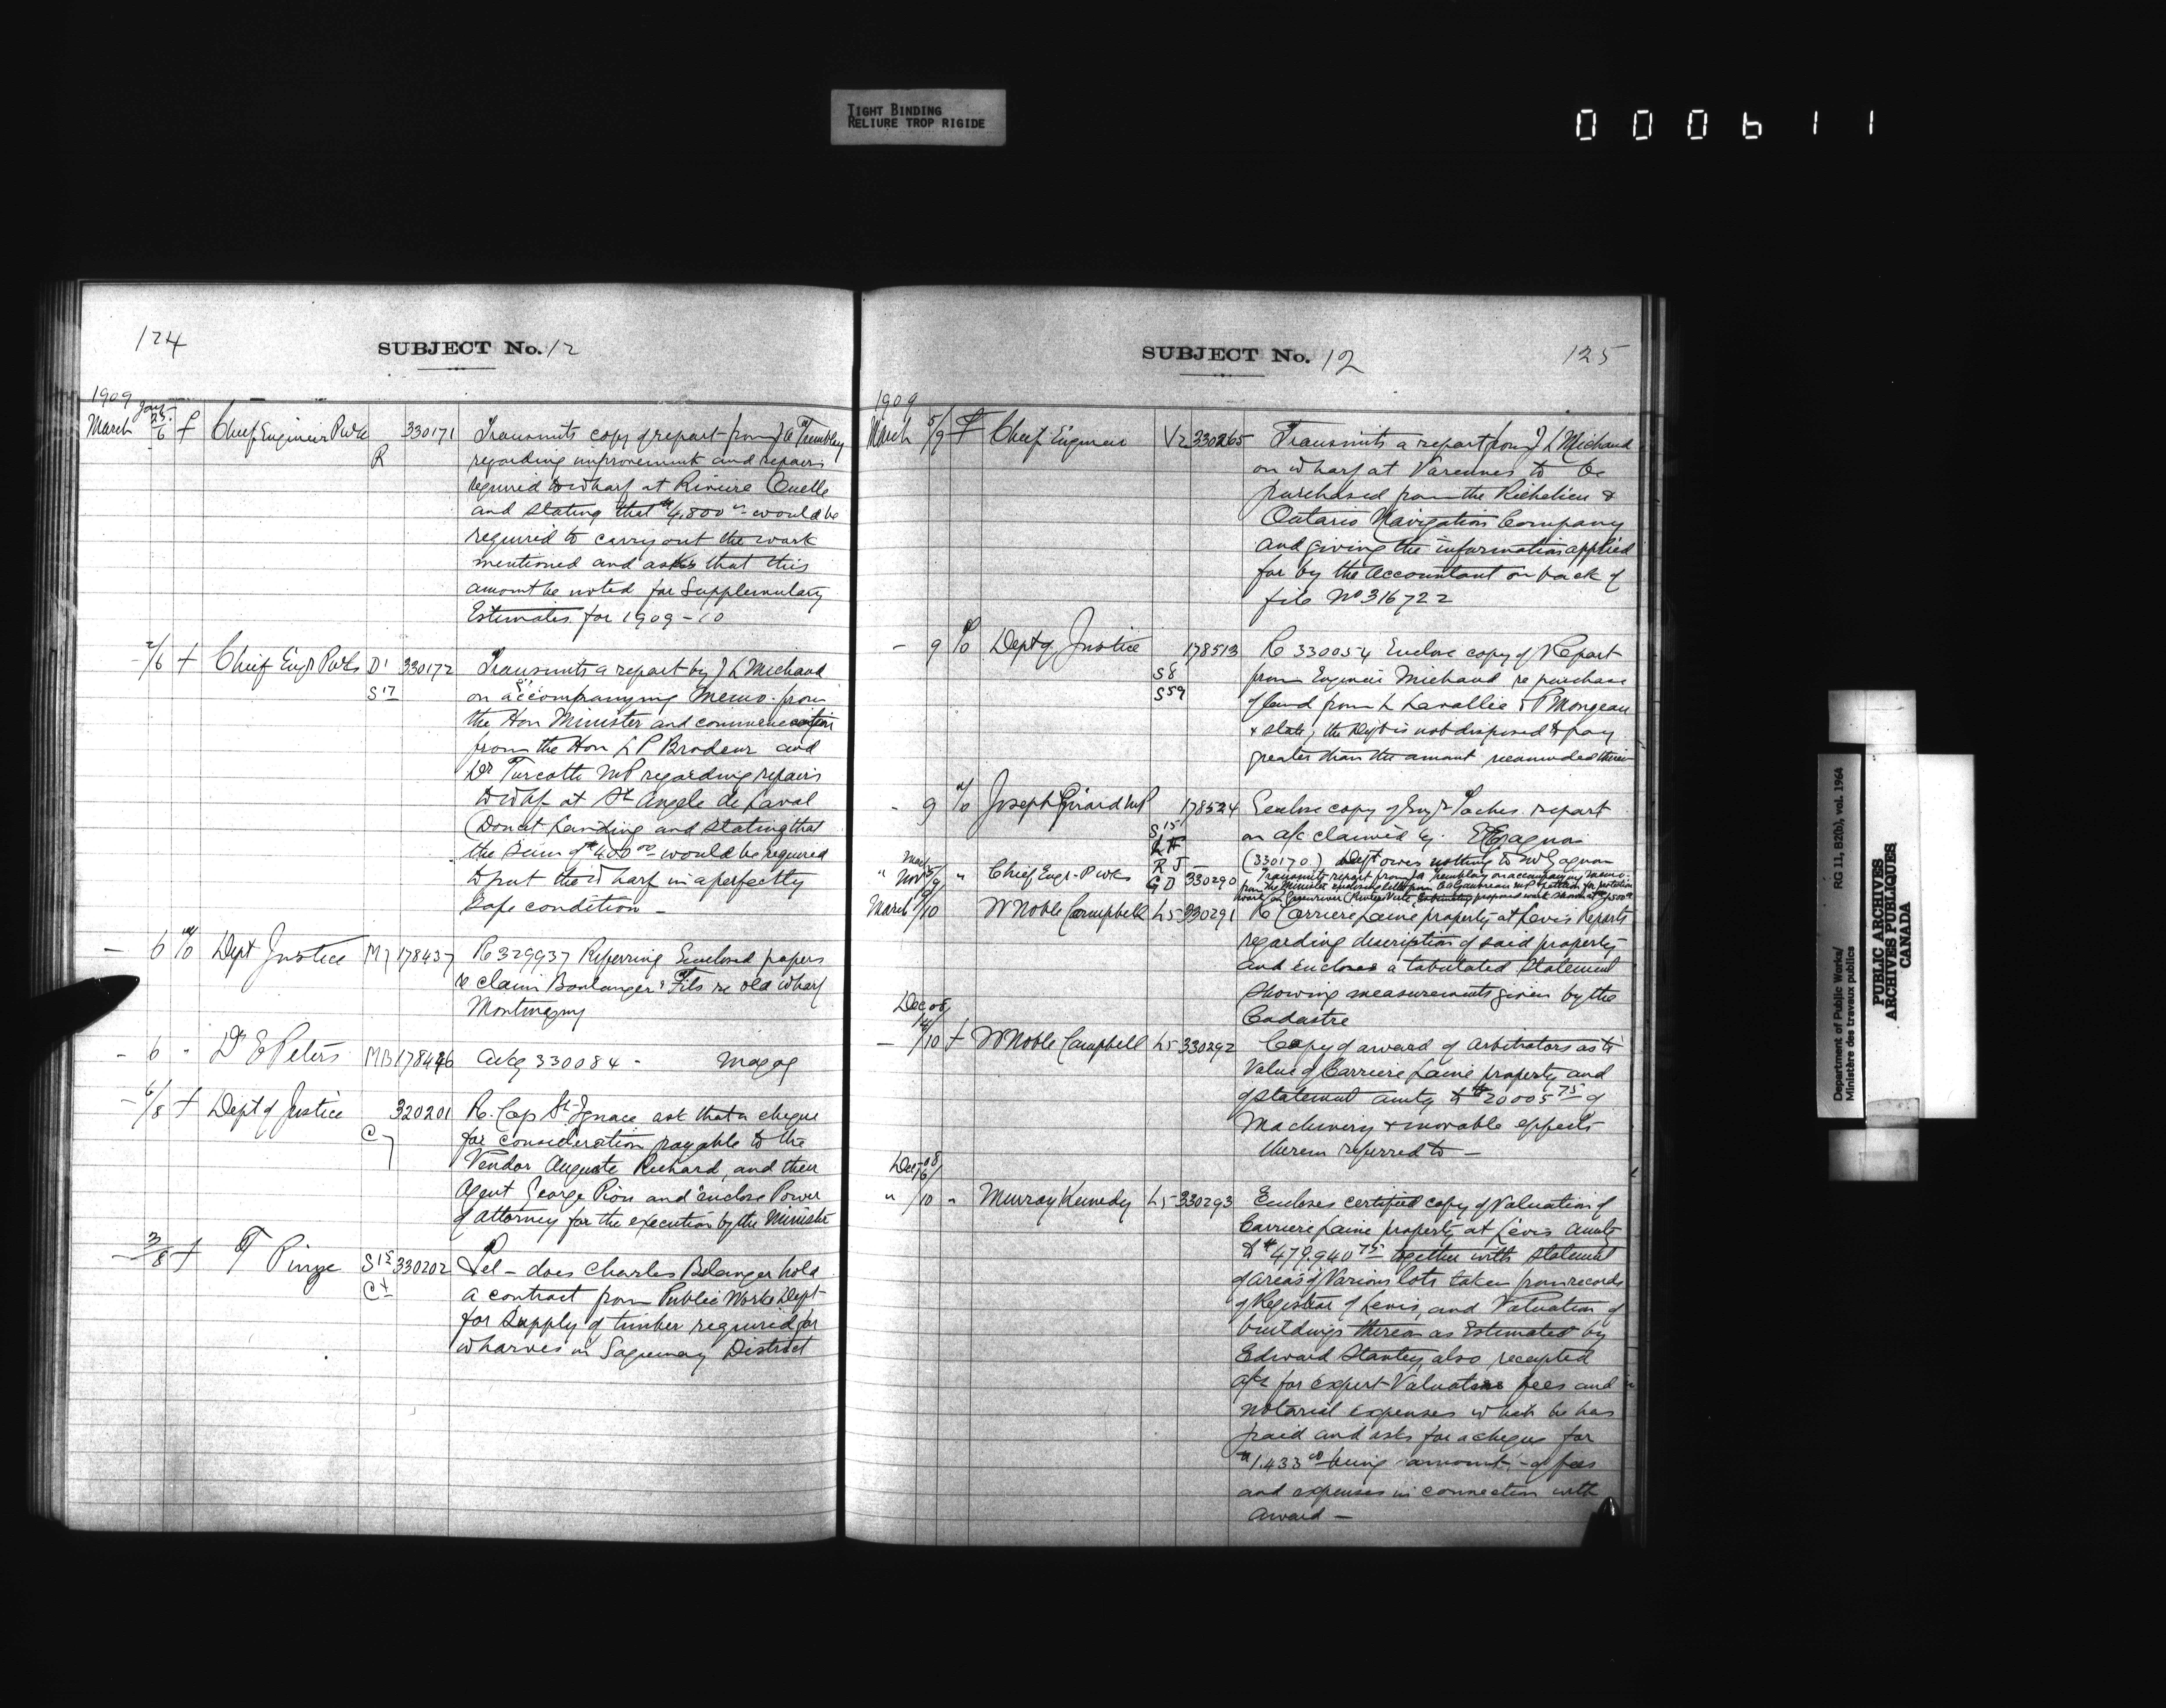 TIGHT BINDING
RELIURE TROP RIGIDE
000611
124
SUBJECT No. 12
1909
March Jany 25/6 f Chief Engineer PWks R 330171 Transmits copy of report from J A Trembley
regarding improvement and repairs
required to wharf at Riviere Ouelle
and stating that $4,800 would be
required to carry out the work
mentioned and asks that this
amount be noted for Supplementary
Estimates for 1909-10
- 2/6 f Chief Engr PWks D1 S17 330172 Transmits a report by J L Michaud
on accompanying Memo. from
the Hon Minister and communication
from the Hon L P Brodeur and
Dr Turcotte MP regarding repairs
to whf at St Angele de Laval
(Doucet Landing and stating that
the sum of $400 00 would be required
to put the wharf in a perfectly
safe condition -
- 6 Dept Justice M7 178437 Re 329937 Referring Enclosed papers
re claim Boulanger & Fils re old wharf
Montmagny
- 6 " Dr E Peters MB 178446 Ackg 330084 - Magog
- 6/8 f Dept of Justice C7 320201 Re. Cap St. Ignace ask that a cheque
for consideration payable to the
Vendor Auguste Richard, and their
agent George Pion and enclose Power
of attorney for the execution by the Minister
- 3/8 f T Pinze S15 Ct 330202 Tel - does Charles Belanger hold
a contract from Public Works Dept
for supply of timber required for
wharves in Saguenay District
SUBJECT No. 12
125
1909
March 5/9 f Chief Engineer V2 330265 Transmits a report from J L Michaud
on wharf at Varennes to be
purchased from the Richelieu &
Ontario Navigation Company
and giving the information applied
for by the accountant on back of
file No 316722
- 9 Dept of Justice S8 S59 178513 Re 330054 Enclose copy of Report
from Engineer Michaud re purchase
of land from L Lavallie & P Mongeau
& state, the Dept is not disposed to pay
greater than the amount recommended therein
- 9 Joseph Girard MP S15 178524 Enclose copy of Engr Taches report
on a/c claimed by E Gagnon
(330170) Dept owes nothing to Mr Gagnon
" 9 " Chief Engr. P wks R J G D 330290 Transmits report from J A Tremblay on accompanying memo.
from the Minister enclosing letter from
March 9/10 W Noble Campbell L5 330291 Re Carriere Laine property at Levis Reports
regarding description of said property
and encloses a tabulated Statement
showing measurements given by the
Cadastre
Dec 08
- 14/10 f W Noble Campbell L5 330292 Copy of award of Arbitrators as to
Value of Carriere Laine property and
of statement amtg to $20005 75 of
Machinery & movable effects
therein referred to -
Dec 08
" 16/10 " Murray Kennedy L5 330293 Encloses certified copy of Valuation of
Carriere Laine property at Levis Amtg
to $479,940 75 together with statement
of areas of Various lots taken from records
of Registrar of Levis, and Valuation of
buildings thereon as Estimated by
Edward Stanley, also receipted
a/cs for expert Valuators fees and
notarial expenses which he has
paid and asks for a cheque for
$1,433 00 being amount of fees
and expenses in connection with
award -
Department of Public Works/ RG 11, B2(b), vol. 1964
Ministère des travaux publics
PUBLIC ARCHIVES
ARCHIVES PUBLIQUES
CANADA